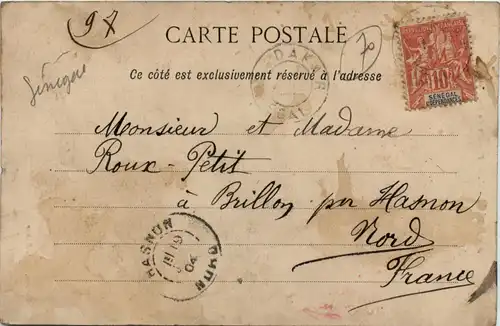 97
Sénégal
CARTE POSTALE
70
Ce côté est exclusivement réservé à l'adresse
DAKAR
RÉPUBLIQUE FRANÇAISE
10
SÉNÉGAL
ET DÉPENDANCES
Monsieur et Madame
Roux-Petit
à Brillon par Hasnon
Nord
France
HASNON
19
04
NORD